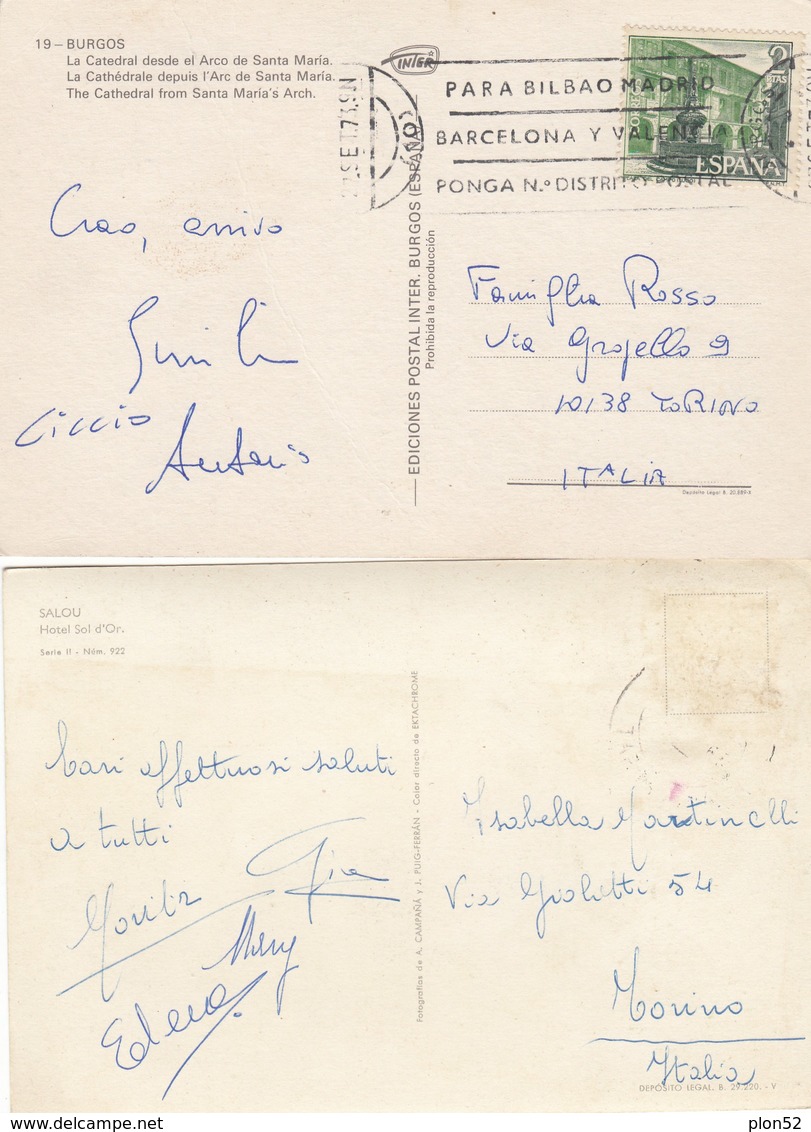 19 – BURGOS
La Catedral desde el Arco de Santa María.
La Cathédrale depuis l'Arc de Santa María.
The Cathedral from Santa María's Arch.
INTER
PARA BILBAO MADRID
BARCELONA Y VALENCIA
PONGA N.º DISTRITO POSTAL
2 PTAS
CORREOS
ESPAÑA
Ciao, arrivo
Ciccio
Antonio
EDICIONES POSTAL INTER. BURGOS (ESPAÑA)
Prohibida la reproducción
Famiglia Rosso
Via Gropello 9
10138 TORINO
ITALIA
Depósito Legal B. 20.889-X
SALOU
Hotel Sol d'Or.
Serie II - Núm. 922
Cari affettuosi saluti
a tutti
Pia
Mery
Elena
Fotografías de A. CAMPAÑÁ y J. PUIG-FERRÁN - Color directo de EKTACHROME
Isabella Martinelli
Via Giolitti 54
Torino
Italia
DEPÓSITO LEGAL. B. 29.220. - V
plon52